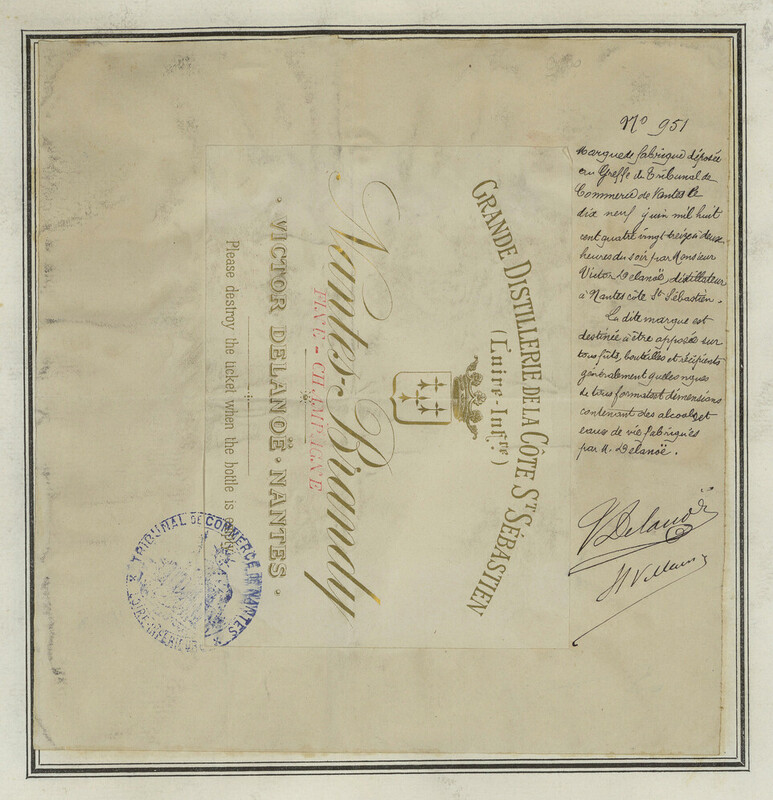 No 951
Marque de fabrique déposée
au Greffe du Tribunal de
Commerce de Nantes le
dix neuf juin mil huit
cent quatre vingt treize à deux
heures du soir par Monsieur
Victor Delanoë, distillateur
à Nantes côte St Sébastien.
La dite marque est
destinée à être apposée sur
tous fûts, bouteilles et récipients
généralement quelconques
de tous formats et dimensions
contenant des alcools et
eaux de vie fabriqués
par M. Delanoë.
V Delanoë
GRANDE DISTILLERIE DE LA CÔTE ST SÉBASTIEN
(Loire-Infre)
Nantes-Brandy
FINE-CHAMPAGNE
· VICTOR DELANOË · NANTES ·
Please destroy the ticket when the bottle is
TRIBUNAL DE COMMERCE DE NANTES
LOIRE-INFERIEURE